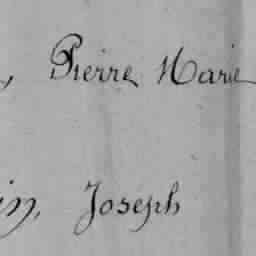 , Pierre Marie
in, Joseph